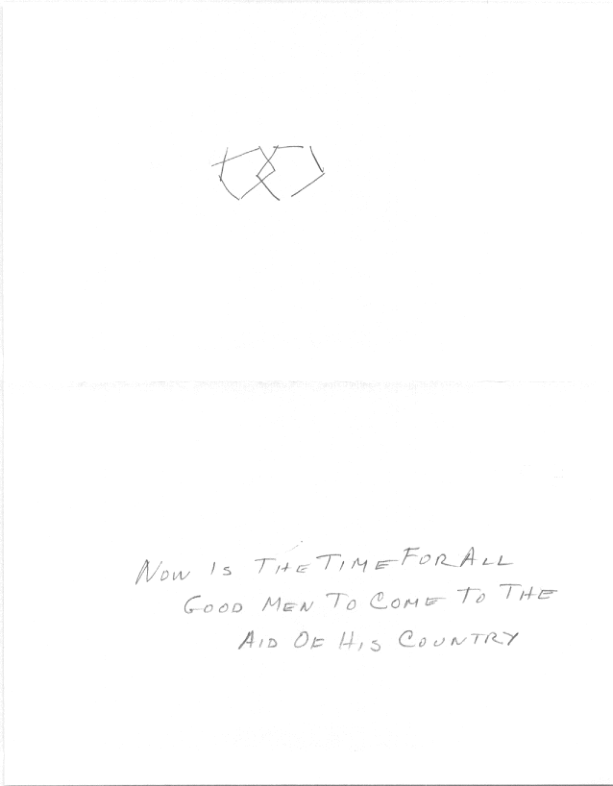 Now Is The Time For All
Good Men To Come To The
Aid Of His Country